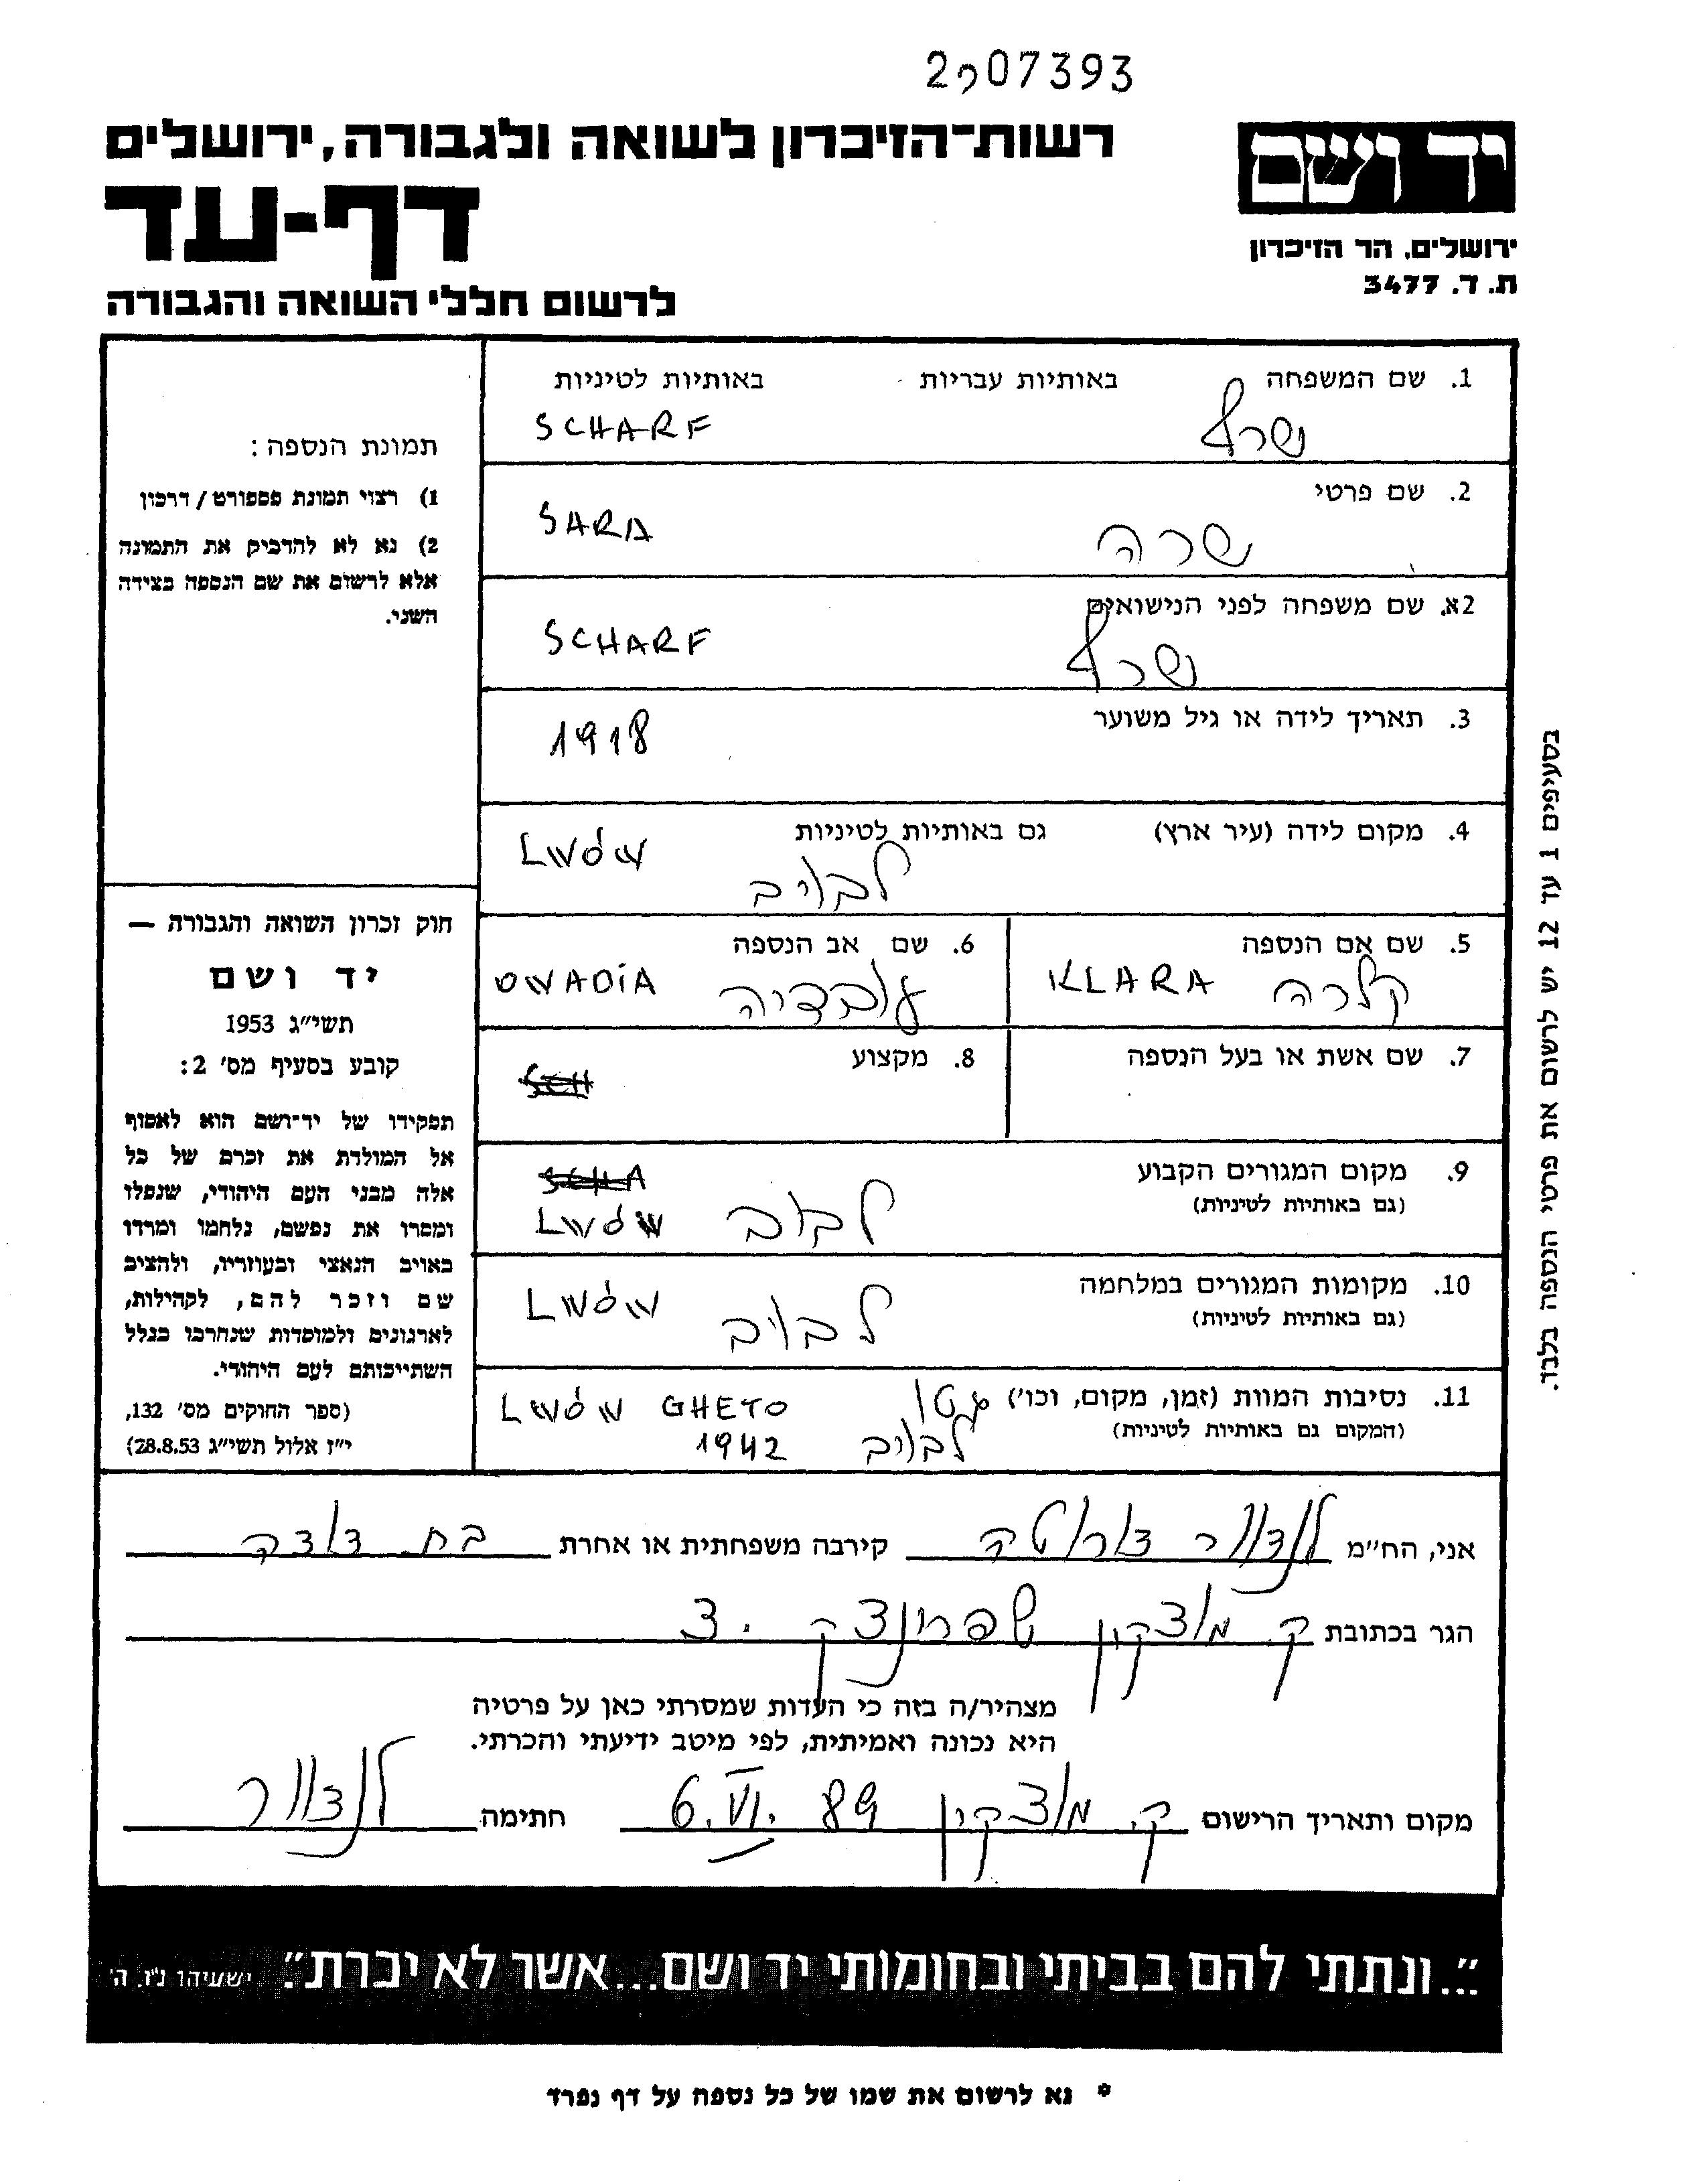 2007393
רשות-הזיכרון לשואה ולגבורה, ירושלים
יד ושם
דף-עד
ירושלים, הר הזיכרון
ת. ד. 3477
לרשום חללי השואה והגבורה
1. שם המשפחה באותיות עבריות באותיות לטיניות
שרף SCHARF
2. שם פרטי
שרה SARA
2א. שם משפחה לפני הנישואים
שרף SCHARF
3. תאריך לידה או גיל משוער
1918
4. מקום לידה (עיר ארץ) גם באותיות לטיניות
לבוב LWÓW
5. שם אם הנספה
קלרה KLARA
6. שם אב הנספה
עובדיה OWADIA
7. שם אשת או בעל הנספה
8. מקצוע
SCH
9. מקום המגורים הקבוע
(גם באותיות לטיניות)
SCHA
לבוב LWÓW
10. מקומות המגורים במלחמה
(גם באותיות לטיניות)
לבוב LWÓW
11. נסיבות המוות (זמן, מקום, וכו')
(המקום גם באותיות לטיניות)
גטו LWÓW GHETO
לבוב 1942
תמונת הנספה:
1) רצוי תמונת פספורט / דרכון
2) נא לא להדביק את התמונה
אלא לרשום את שם הנספה בצידה
השני.
חוק זכרון השואה והגבורה —
יד ושם
תשי"ג 1953
קובע בסעיף מס' 2:
תפקידו של יד-ושם הוא לאסוף
אל המולדת את זכרם של כל
אלה מבני העם היהודי, שנפלו
ומסרו את נפשם, נלחמו ומרדו
באויב הנאצי ובעוזריו, ולהציב
שם וזכר להם, לקהילות,
לארגונים ולמוסדות שנחרבו בגלל
השתייכותם לעם היהודי.
(ספר החוקים מס' 132,
י"ז אלול תשי"ג 28.8.53)
בסעיפים 1 עד 12 יש לרשום את פרטי הנספה בלבד.
אני, הח"מ לנצוור קירבה משפחתית או אחרת בת דודה
הגר בכתובת ק. מוצקין שפרינצק 3.
מצהיר/ה בזה כי העדות שמסרתי כאן על פרטיה
היא נכונה ואמיתית, לפי מיטב ידיעתי והכרתי.
מקום ותאריך הרישום ק. מוצקין 6.VI.89 חתימה
"...ונתתי להם בביתי ובחומותי יד ושם...אשר לא יכרת". ישעיהו נ"ו, ה'
* נא לרשום את שמו של כל נספה על דף נפרד